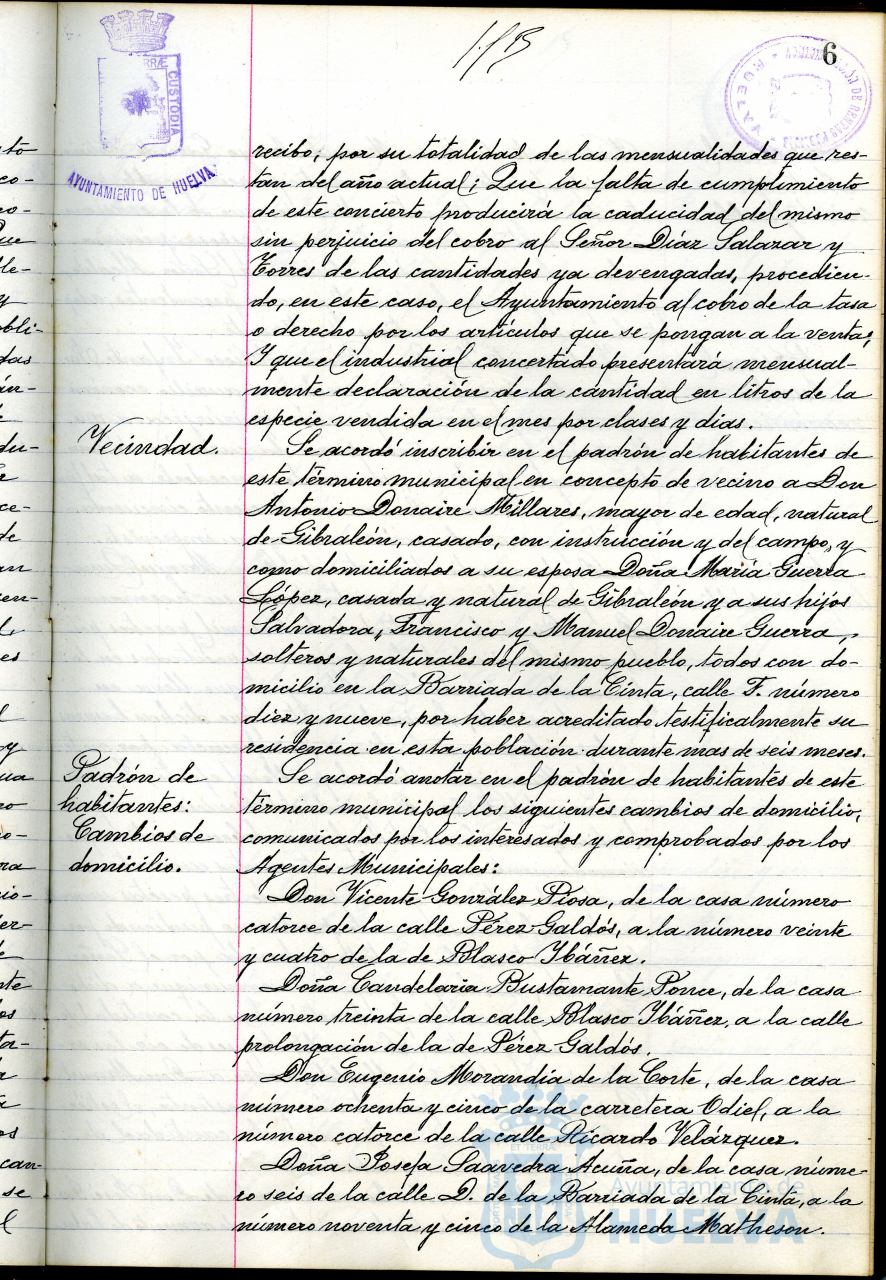 6
AYUNTAMIENTO DE HUELVA
CUSTODIA
recibo, por su totalidad de las mensualidades que res-
tan del año actual; Que la falta de cumplimiento
de este concierto producirá la caducidad del mismo
sin perjuicio del cobro al Señor Díaz Salazar y
Torres de las cantidades ya devengadas, procedien-
do, en este caso, el Ayuntamiento al cobro de la tasa
o derecho por los artículos que se pongan a la venta;
Y que el industrial concertado presentará mensual-
mente declaración de la cantidad en litros de la
especie vendida en el mes por clases y dias.
Vecindad.
Se acordó inscribir en el padrón de habitantes de
este término municipal en concepto de vecino a Don
Antonio Donaire Millares, mayor de edad, natural
de Gibraleón, casado, con instrucción y del campo, y
como domiciliados a su esposa Doña María Guerra
López, casada y natural de Gibraleón y a sus hijos
Salvadora, Francisco y Manuel Donaire Guerra,
solteros y naturales del mismo pueblo, todos con do-
micilio en la Barriada de la Cinta, calle F. número
diez y nueve, por haber acreditado testificalmente su
residencia en esta población durante mas de seis meses.
Padrón de
habitantes:
Cambios de
domicilio.
Se acordó anotar en el padrón de habitantes de este
término municipal los siguientes cambios de domicilio,
comunicados por los interesados y comprobados por los
Agentes Municipales:
Don Vicente González Piosa, de la casa número
catorce de la calle Pérez Galdós, a la número veinte
y cuatro de la de Blasco Ibáñez.
Doña Candelaria Bustamante Ponce, de la casa
número treinta de la calle Blasco Ibáñez, a la calle
prolongación de la de Pérez Galdós.
Don Eugenio Morandia de la Corte, de la casa
número ochenta y cinco de la carretera Odiel, a la
número catorce de la calle Ricardo Velázquez.
Doña Josefa Saavedra Acuña, de la casa núme-
ro seis de la calle D. de la Barriada de la Cinta, a la
número noventa y cinco de la Alameda Matheson.
Ayuntamiento de
HUELVA